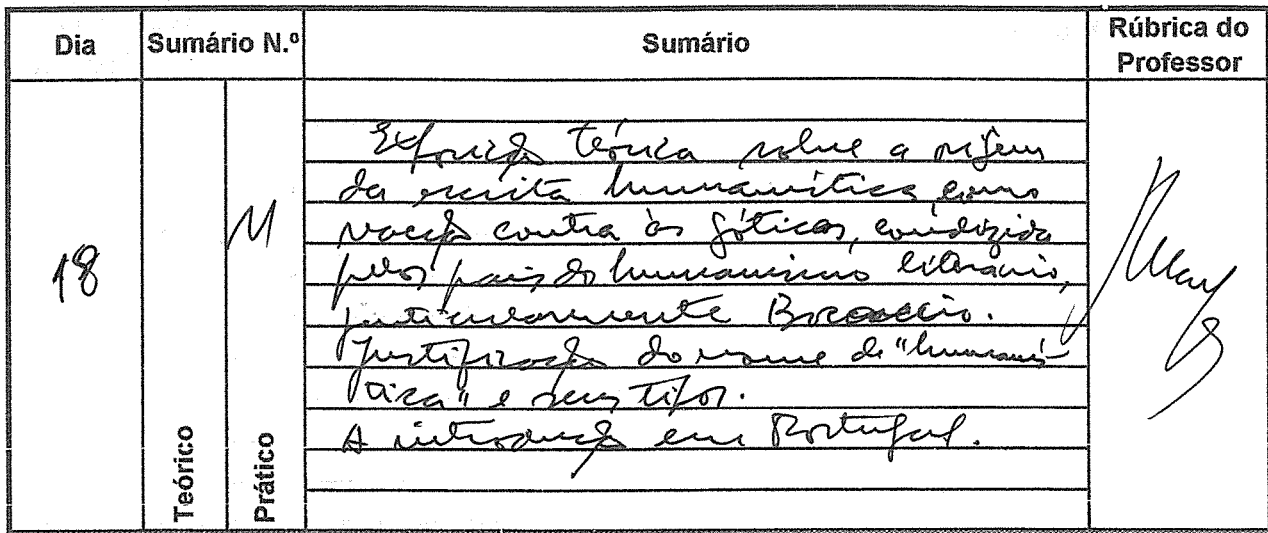 Dia
Sumário N.º
Sumário
Rúbrica do
Professor
18
Teórico
Prático
Exposição teórica sobre a origem
da escrita humanística, como
reacção contra as góticas, conduzida
pelos pais do humanismo literário,
particularmente Boccaccio.
Justificação do nome de "humanís-
tica" e seus tipos.
A introdução em Portugal.